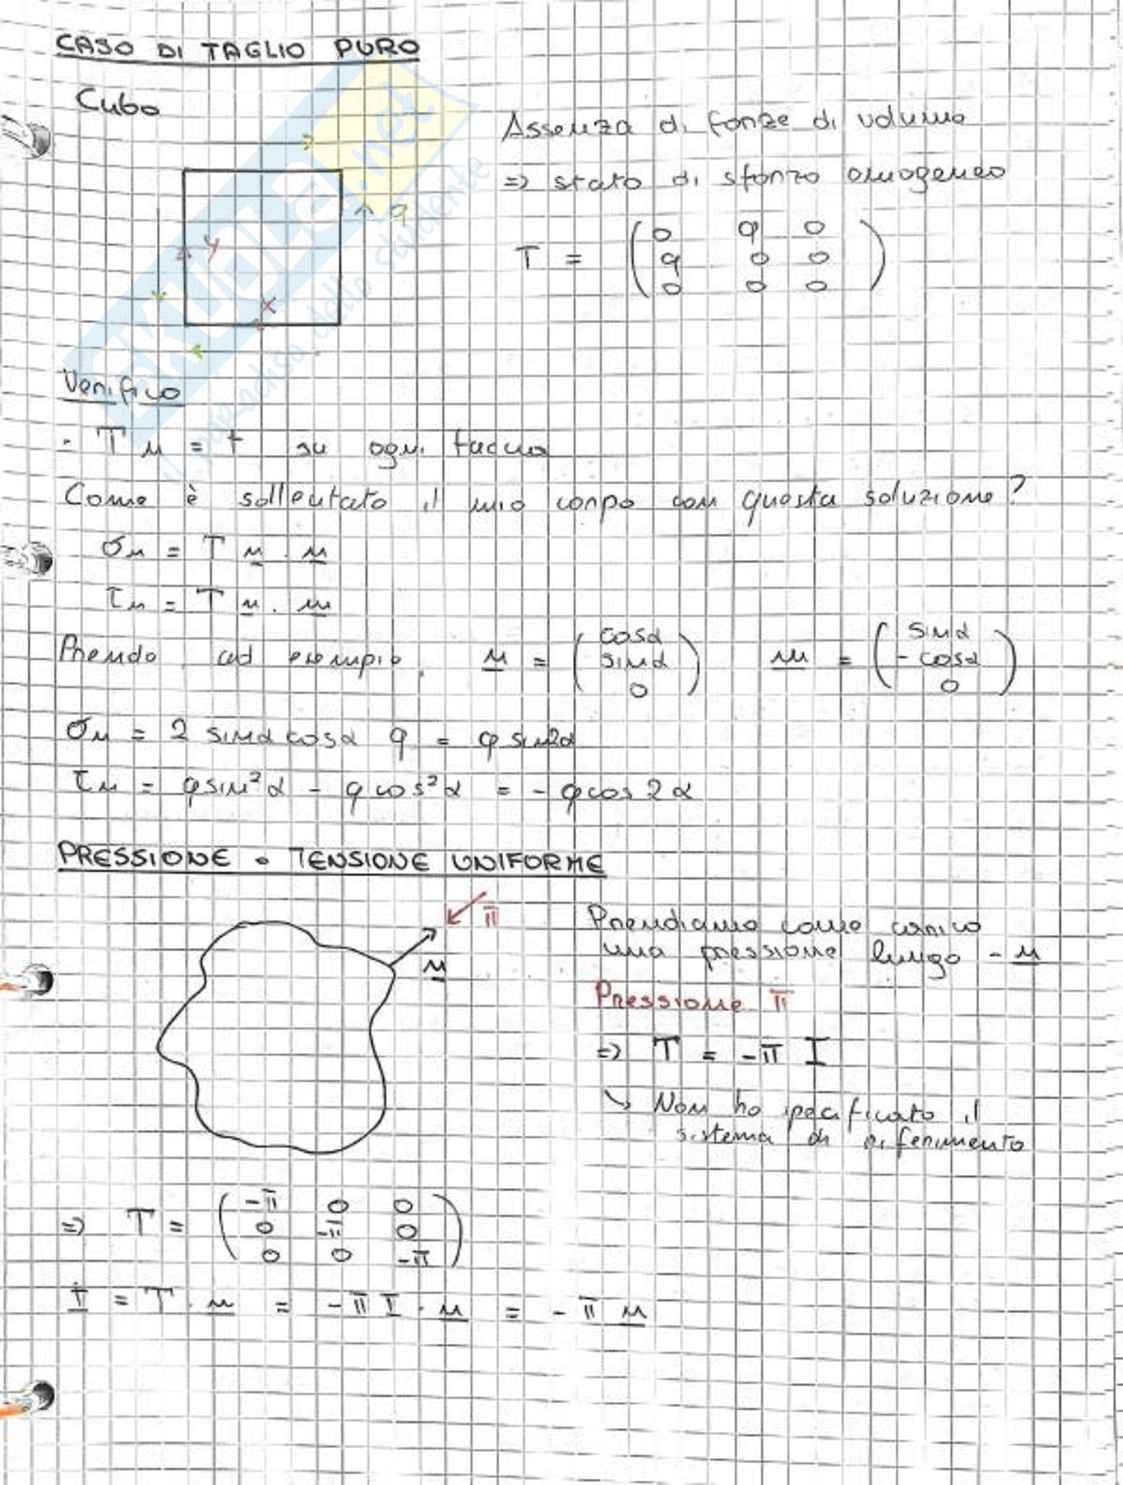 CASO DI TAGLIO PURO
Cubo
Assenza di forze di volume
=> stato di sforzo omogeneo
q
y
x
T = ( 0 q 0
q 0 0
0 0 0 )
SKUOLA.net
Verifico
- T n = t su ogni faccia
Come è sollecitato il mio corpo con questa soluzione?
σn = T n · n
τn = T n · m
Prendo ad esempio, n = ( cosα
sinα
0 ) m = ( sinα
- cosα
0 )
σn = 2 sinα cosα q = q sin2α
τn = q sin²α - q cos²α = - q cos 2α
PRESSIONE o TENSIONE UNIFORME
π
n
Prendiamo come carico
una pressione lungo - n
Pressione π
=> T = -π I
↳ Non ho specificato il
sistema di riferimento
=> T = ( -π 0 0
0 -π 0
0 0 -π )
t = T · n = - π I · n = - π n